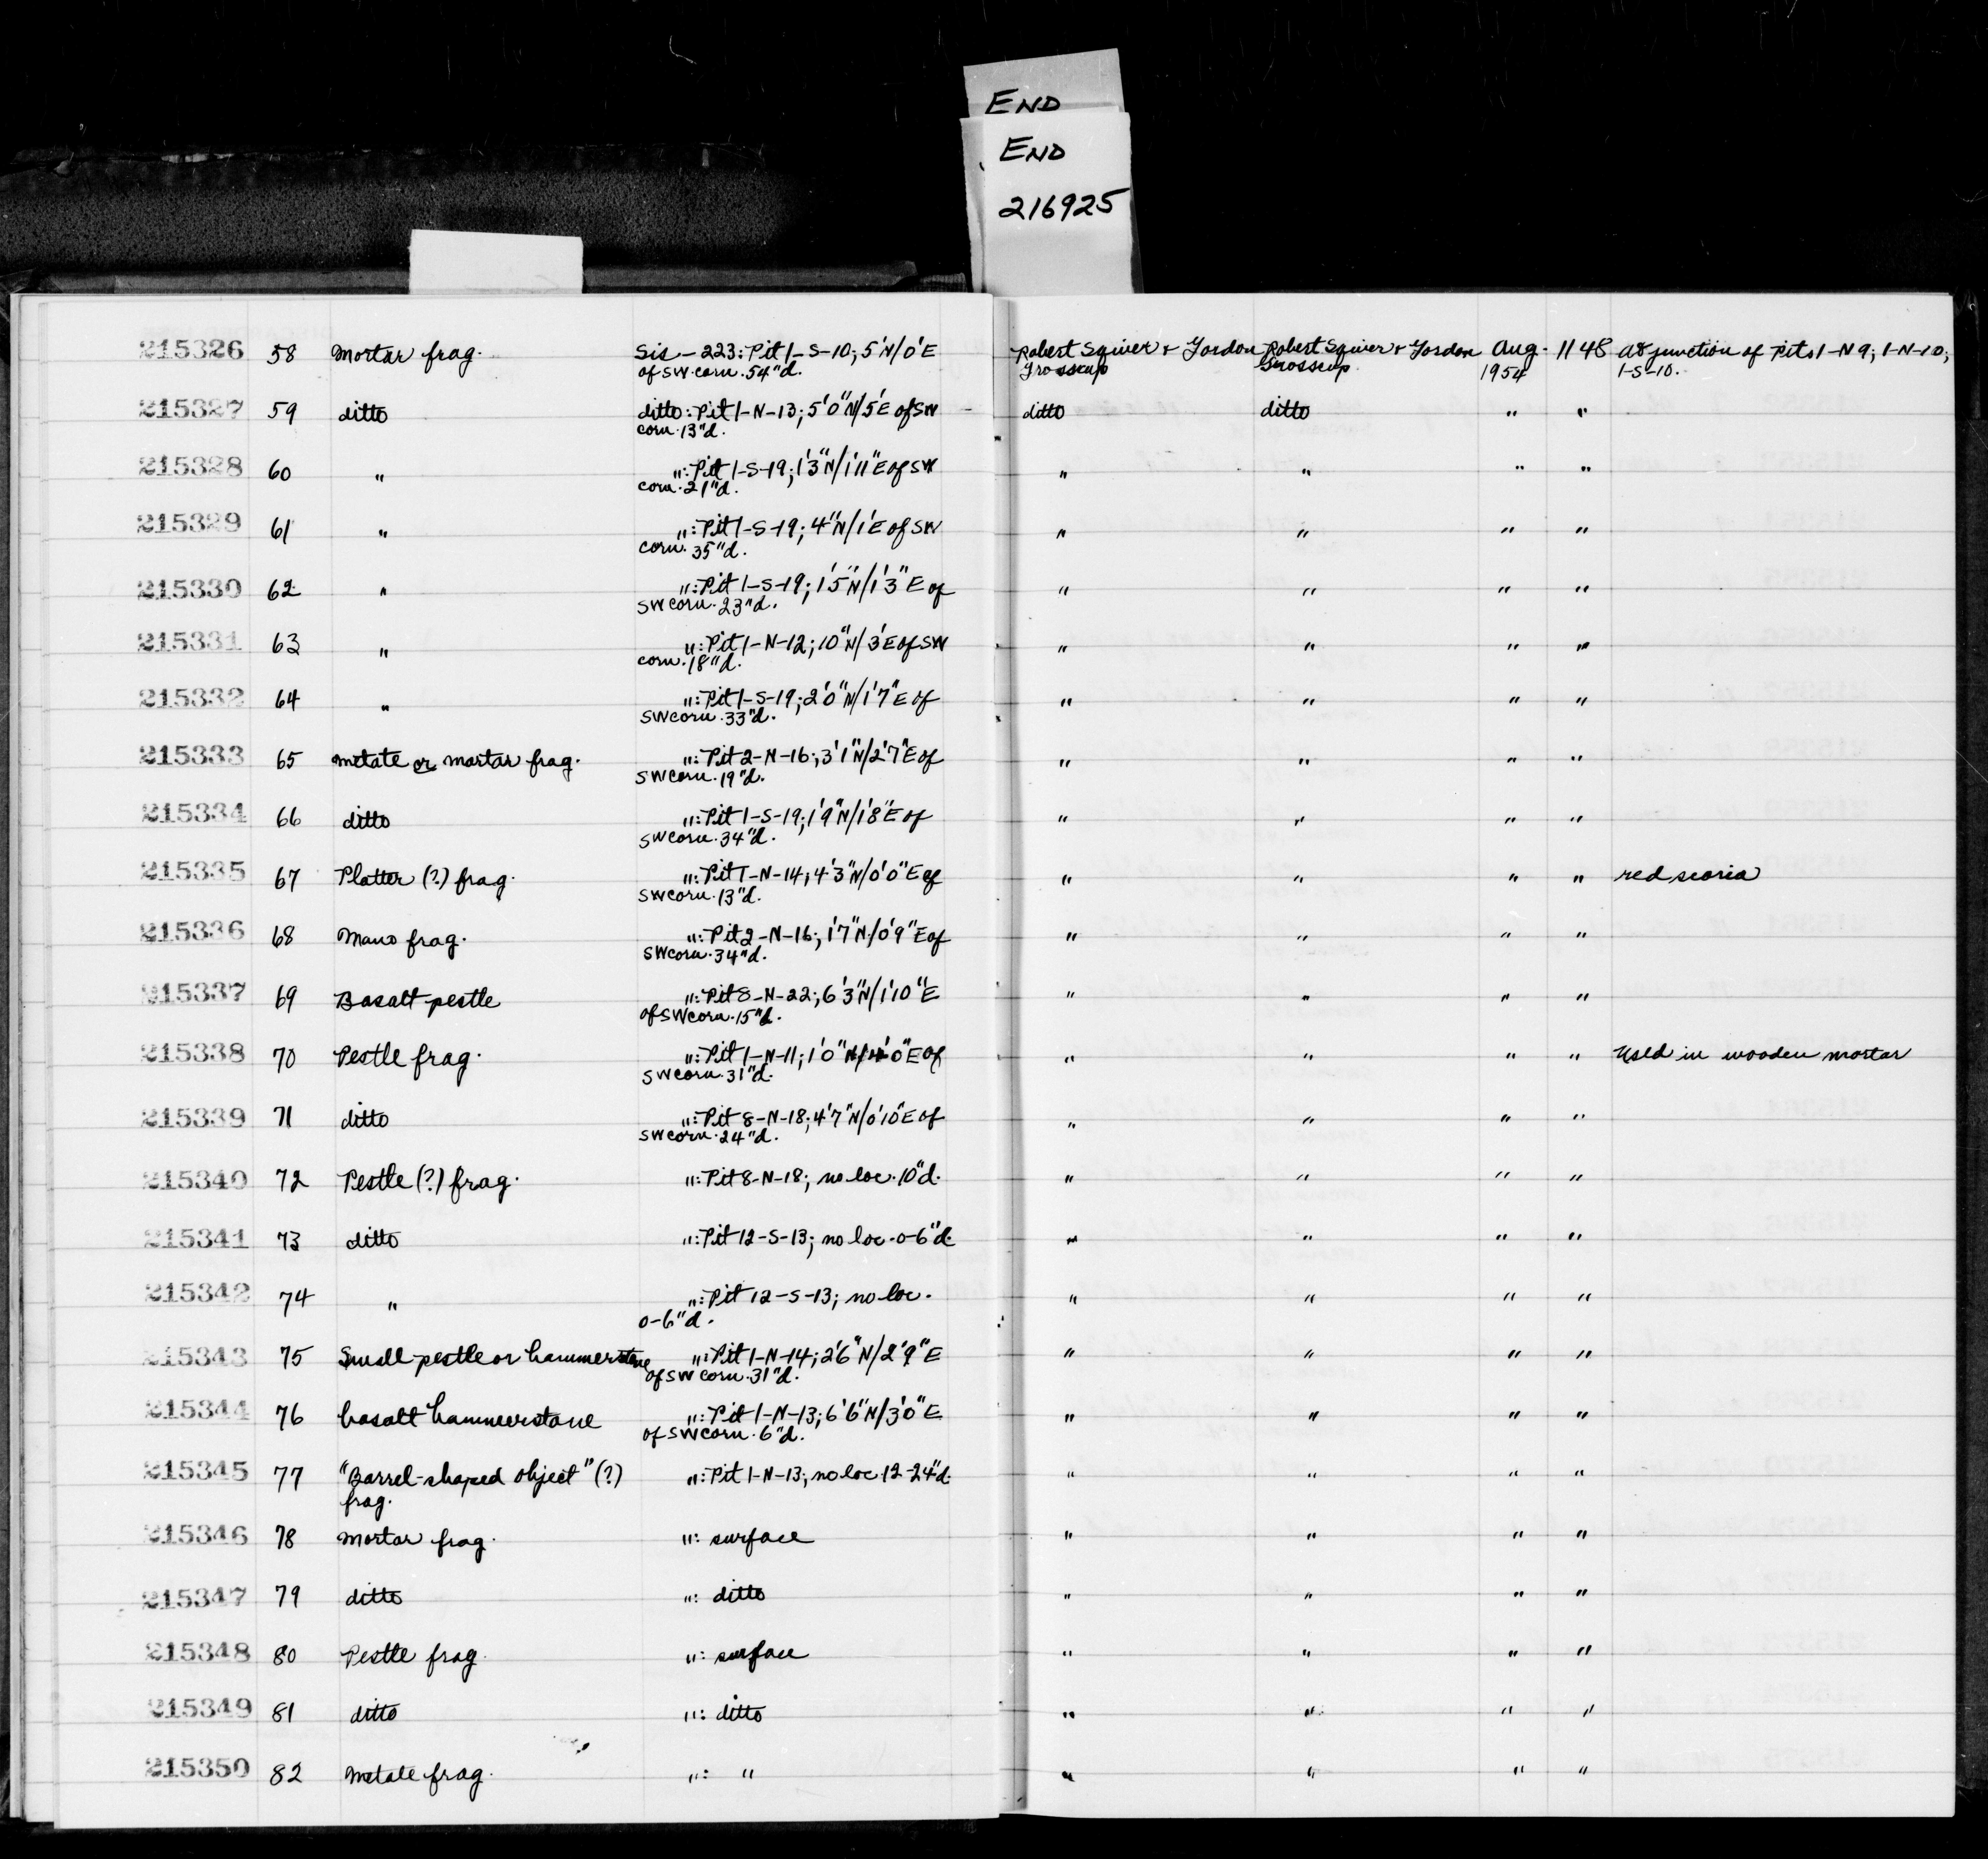 END
END
216925
215326 58 Mortar frag. Sis-223: Pit 1-S-10; 5'N/0'E Robert Squier + Gordon Robert Squier + Gordon Aug. 1148 At junction of Pits 1-N-9; 1-N-10;
of SW corn. 54"d. Grosscup Grosscup 1954 1-S-10.
215327 59 ditto ditto: Pit 1-N-13; 5'0"N/5'E of SW ditto ditto " "
corn. 13"d.
215328 60 " ": Pit 1-S-19; 1'3"N/1'11"E of SW " " " "
corn. 21"d.
215329 61 " ": Pit 1-S-19; 4"N/1'E of SW " " " "
corn. 35"d.
215330 62 " ": Pit 1-S-19; 1'5"N/1'3"E of " " " "
SW corn. 23"d.
215331 63 " ": Pit 1-N-12; 10"N/3'E of SW " " " "
corn. 18"d.
215332 64 " ": Pit 1-S-19; 2'0"N/1'7"E of " " " "
SW corn. 33"d.
215333 65 Metate or mortar frag. ": Pit 2-N-16; 3'1"N/2'7"E of " " " "
SW corn. 19"d.
215334 66 ditto ": Pit 1-S-19; 1'9"N/1'8"E of " " " "
SW corn. 34"d.
215335 67 Platter (?) frag. ": Pit 1-N-14; 4'3"N/0'0"E of " " " " red scoria
SW corn. 13"d.
215336 68 Mano frag. ": Pit 2-N-16; 1'7"N/0'9"E of " " " "
SW corn. 34"d.
215337 69 Basalt pestle ": Pit 8-N-22; 6'3"N/1'10"E " " " "
of SW corn. 15"d.
215338 70 Pestle frag. ": Pit 1-N-11; 1'0"N/4'0"E of " " " " Used in wooden mortar
SW corn. 31"d.
215339 71 ditto ": Pit 8-N-18; 4'7"N/0'10"E of " " " "
SW corn. 24"d.
215340 72 Pestle (?) frag. ": Pit 8-N-18; no loc. 10"d. " " " "
215341 73 ditto ": Pit 12-S-13; no loc. 0-6"d. " " " "
215342 74 " ": Pit 12-S-13; no loc. " " " "
0-6"d.
215343 75 Small pestle or hammerstone ": Pit 1-N-14; 2'6"N/2'9"E " " " "
of SW corn. 31"d.
215344 76 basalt hammerstone ": Pit 1-N-13; 6'6"N/3'0"E " " " "
of SW corn. 6"d.
215345 77 "Barrel-shaped object" (?) ": Pit 1-N-13; no loc. 12-24"d. " " " "
frag.
215346 78 Mortar frag. ": surface " " " "
215347 79 ditto ": ditto " " " "
215348 80 Pestle frag. ": surface " " " "
215349 81 ditto ": ditto " " " "
215350 82 Metate frag. ": " " " " "